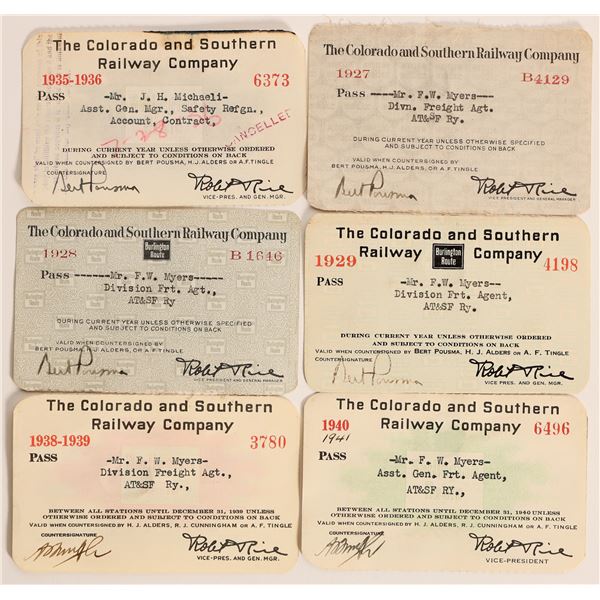 The Colorado and Southern
Railway Company
1935-1936 6373
PASS -Mr. J. H. Michaeli-
Asst. Gen. Mgr., Safety Refgn.,
Account, Contract,
CANCELLED
DURING CURRENT YEAR UNLESS OTHERWISE ORDERED
AND SUBJECT TO CONDITIONS ON BACK
VALID WHEN COUNTERSIGNED BY BERT POUSMA, H.J. ALDERS, OR A.F. TINGLE
COUNTERSIGNATURE
Bert Pousma Robt Rice
VICE-PRES. AND GEN. MGR.
The Colorado and Southern Railway Company
1927 B4129
PASS ----Mr. F.W. Myers----
Divn. Freight Agt.
AT&SF Ry.
DURING CURRENT YEAR UNLESS OTHERWISE SPECIFIED
AND SUBJECT TO CONDITIONS ON BACK
VALID WHEN COUNTERSIGNED BY
BERT POUSMA, H.J. ALDERS, OR A.F. TINGLE
Bert Pousma Robt Rice
VICE PRESIDENT AND GENERAL MANAGER
The Colorado and Southern Railway Company
1928 Burlington Route B 1646
PASS ------Mr. F.W. Myers-----
Division Frt. Agt.,
AT&SF Ry
DURING CURRENT YEAR UNLESS OTHERWISE SPECIFIED
AND SUBJECT TO CONDITIONS ON BACK
VALID WHEN COUNTERSIGNED BY
BERT POUSMA, H.J. ALDERS, OR A.F. TINGLE
Bert Pousma Robt Rice
VICE PRESIDENT AND GENERAL MANAGER
The Colorado and Southern
Railway Burlington Route Company
1929 4198
PASS -Mr. F.W. Myers--
Division Frt. Agent,
AT&SF Ry.
DURING CURRENT YEAR UNLESS OTHERWISE ORDERED
AND SUBJECT TO CONDITIONS ON BACK
VALID WHEN COUNTERSIGNED BY BERT POUSMA, H. J. ALDERS OR A. F. TINGLE
COUNTERSIGNATURE
Bert Pousma Robt Rice
VICE-PRES. AND GEN. MGR.
The Colorado and Southern
Railway Company
1938-1939 3780
PASS -Mr. F. W. Myers-
Division Freight Agt.,
AT&SF Ry.,
BETWEEN ALL STATIONS UNTIL DECEMBER 31, 1939 UNLESS
OTHERWISE ORDERED AND SUBJECT TO CONDITIONS ON BACK
VALID WHEN COUNTERSIGNED BY H. J. ALDERS, R. J. CUNNINGHAM OR A. F. TINGLE
COUNTERSIGNATURE
Robt Rice
VICE-PRES. AND GEN. MGR.
The Colorado and Southern
Railway Company
1940 6496
1941
PASS -Mr. F. W. Myers-
Asst. Gen. Frt. Agent,
AT&SF RY.,
BETWEEN ALL STATIONS UNTIL DECEMBER 31, 1940 UNLESS
OTHERWISE ORDERED AND SUBJECT TO CONDITIONS ON BACK
VALID WHEN COUNTERSIGNED BY H. J. ALDERS, R. J. CUNNINGHAM OR A. F. TINGLE
COUNTERSIGNATURE
Robt Rice
VICE-PRESIDENT